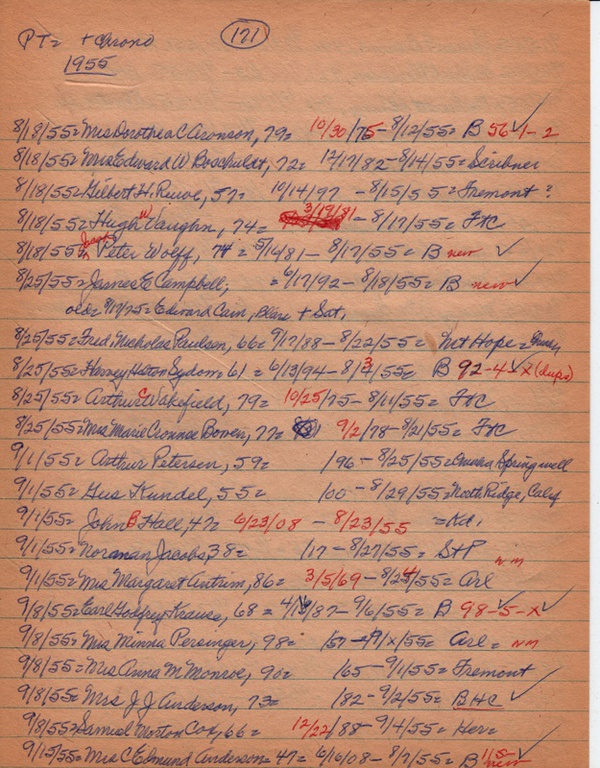 PT= + Chrono (121)
1955
8/18/55= Mrs Dorothea C Aronson, 79= 10/30/75 - 8/12/55= B 56-1-2 ✓
8/18/55= Mrs Edward W Boschuldt, 72= 12/17/82 - 8/14/55= Scribner
8/18/55= Gilbert H. Ruwe, 57= 10/14/97 - 8/15/55= Fremont ?
8/18/55= Hugh W Vaughn, 74= 3/19/81 - 8/17/55= FHC
8/18/55= Peter Wolff, 74= 5/16/81 - 8/17/55= B new ✓
8/25/55= James E Campbell, = 6/17/92 - 8/18/55= B new ✓
Edward Cain, Blair + Sat,
8/25/55= Fred Nicholas Paulsen, 66= 9/17/88 - 8/22/55= Mt Hope =
8/25/55= Harvey Haton Sydom= 61= 6/13/94 - 8/3/55= B 92-4-X (dups)
8/25/55= Arthur C Wakefield, 79= 10/25/75 - 8/11/55= FHC
8/25/55= Mrs Marie Connee Bowen, 77= 9/2/78 - 8/21/55= FHC
9/1/55= Arthur Petersen, 59= /96 - 8/25/55= Omaha Springwell
9/1/55= Gus Kundel, 55= /00 - 8/29/55= North Ridge, Calif
9/1/55= John B Hall, 47= 6/23/08 - 8/23/55 = Kd,
9/1/55= Norman Jacobs, 38= /17 - 8/27/55= StP
9/1/55= Mrs Margaret Antrim, 86= 3/5/69 - 8/24/55= Arl NM
9/8/55= Earl Godfrey Krause, 68= 4/18/87 - 9/6/55= B 98-5-X ✓
9/8/55= Mrs Minnea Persinger, 98= /57 - 9/x/55= Arl = NM
9/8/55= Mrs Anna M Monroe, 90= /65 - 9/1/55= Fremont
9/8/55= Mrs J J Anderson, 73= /82 - 9/2/55= BHC ✓
9/8/55= Samuel Morton Cox, 66= 12/22/88 - 9/4/55= Her=
9/15/55= Mrs C Edmund Anderson= 47= 6/16/08 - 8/7/55= B new